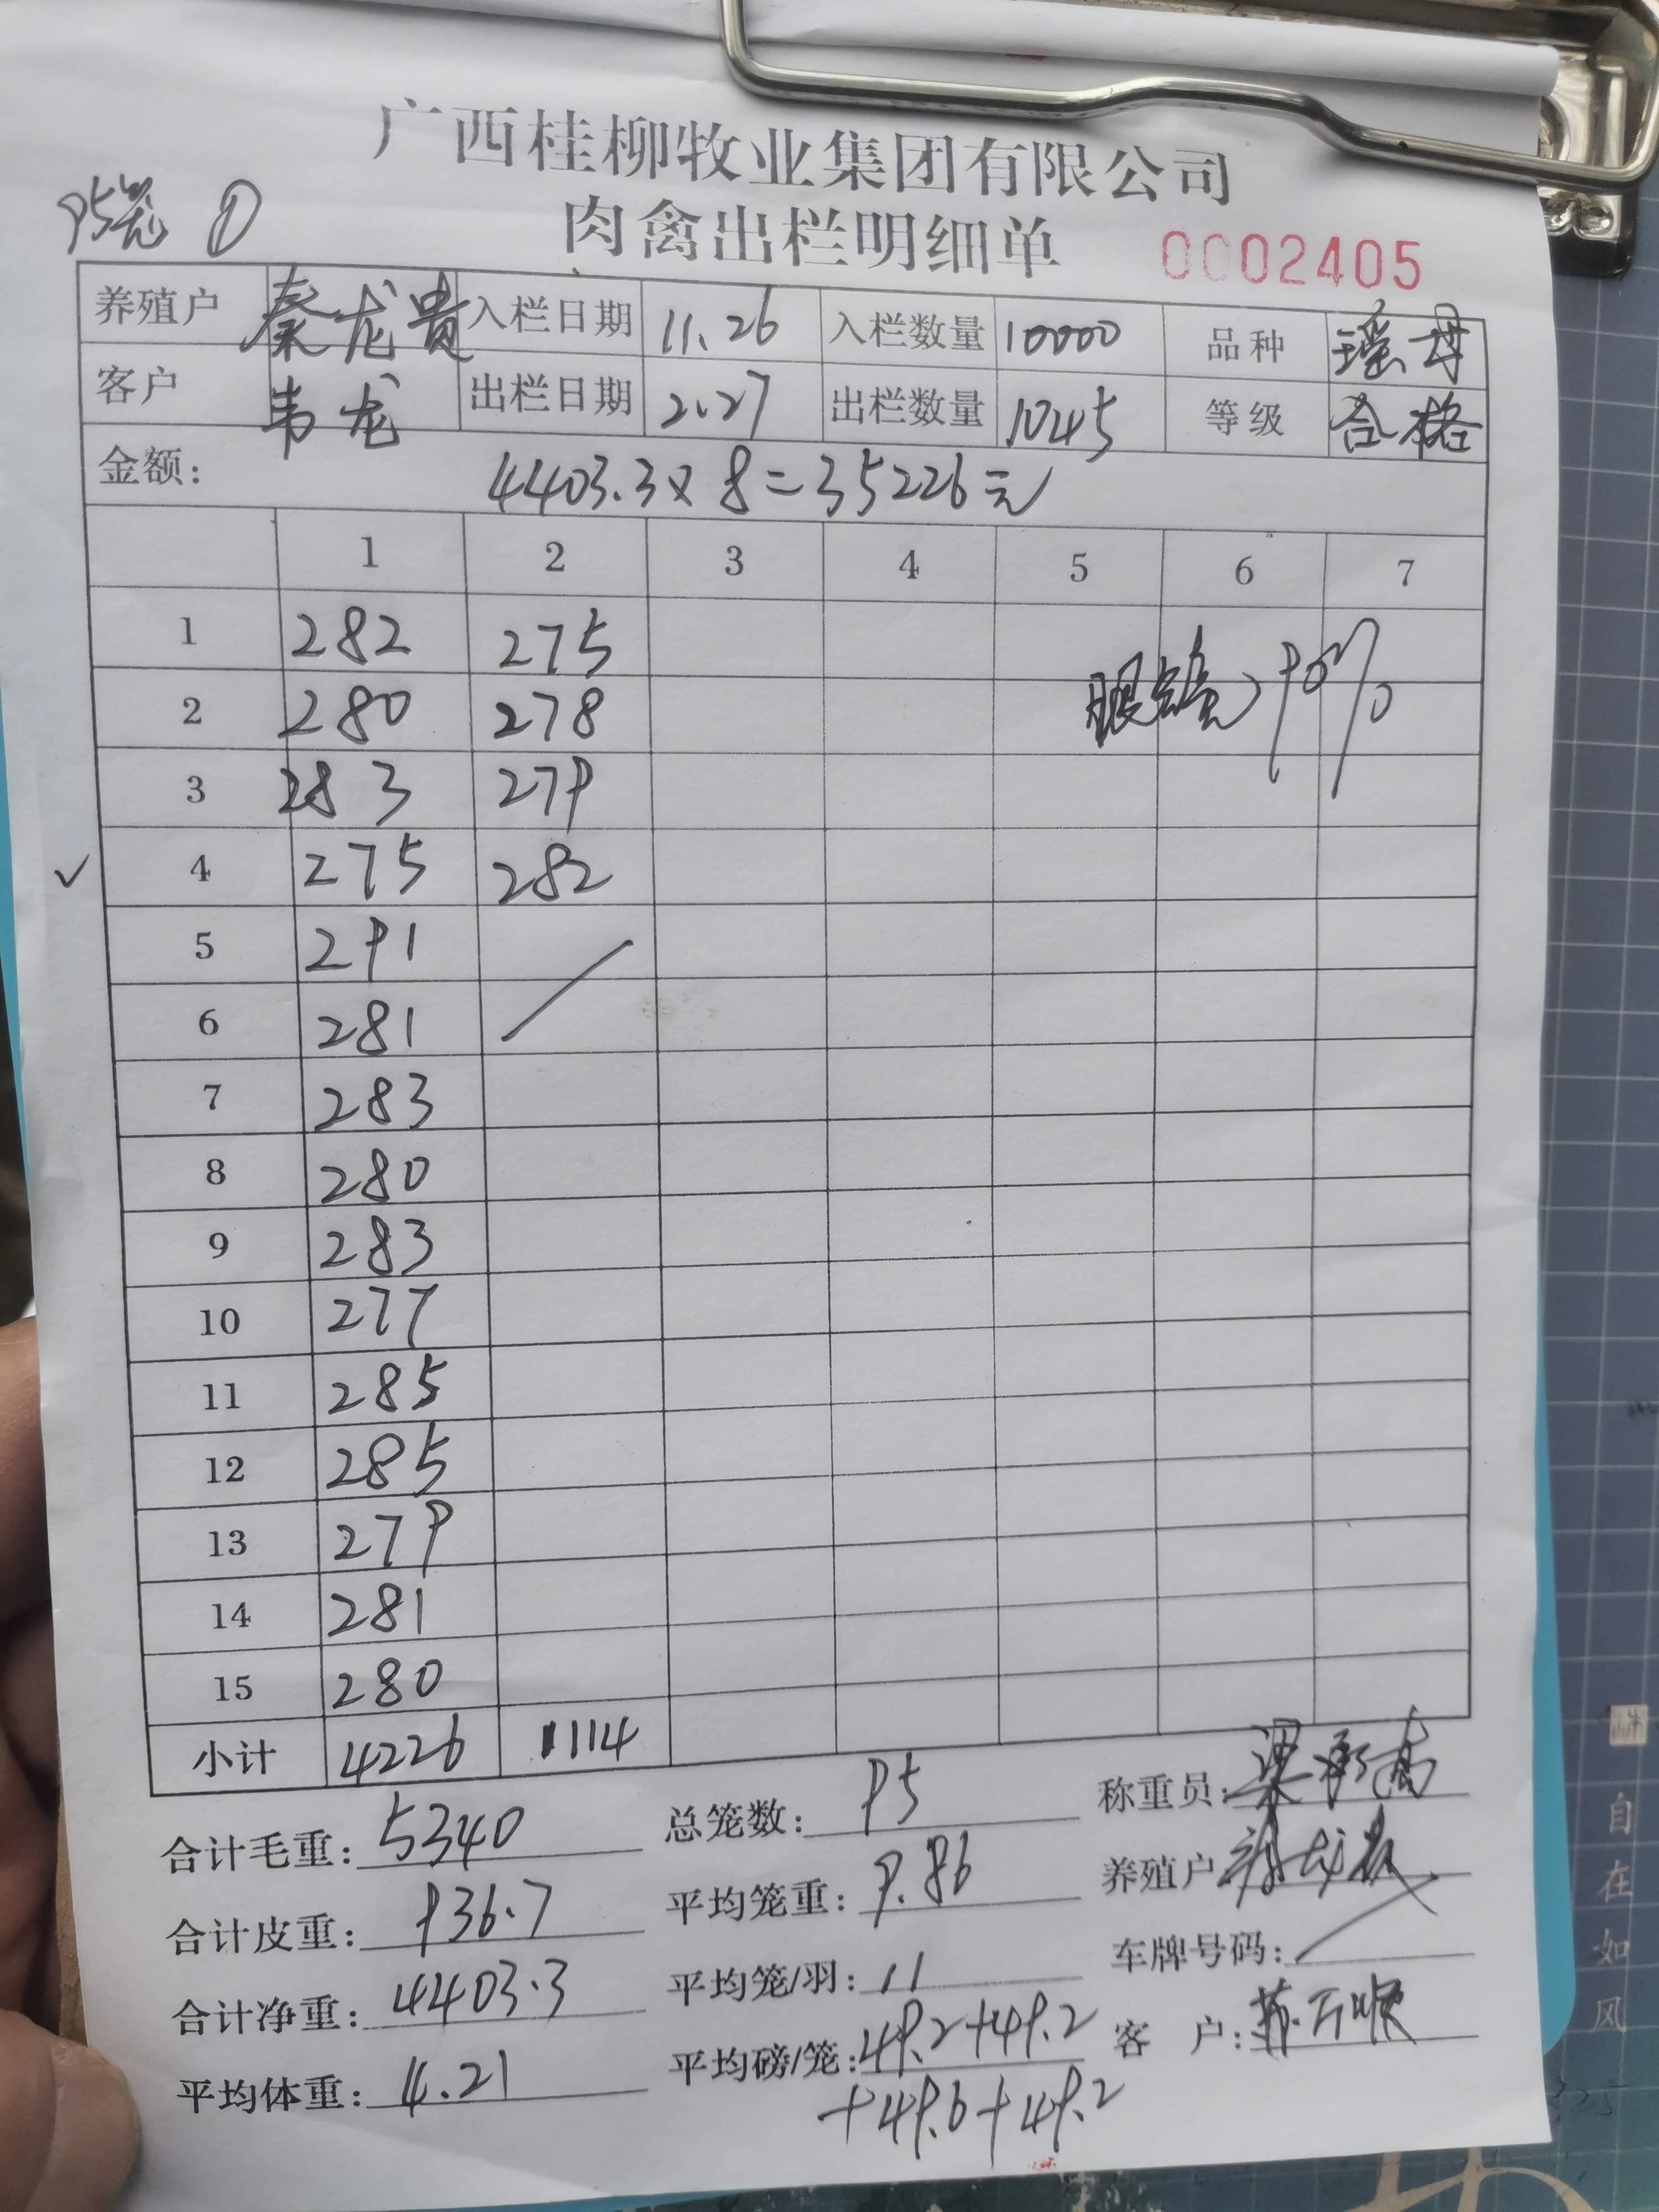 广西桂柳牧业集团有限公司
肉禽出栏明细单
0002405
95笼 ①
养殖户 秦龙贵 入栏日期 11.26 入栏数量 10000 品种 瑶母
客户 韦龙 出栏日期 2.27 出栏数量 1045 等级 合格
金额: 4403.3×8=35226元
1 2 3 4 5 6 7
1 282 275
2 280 278
3 283 279
4 275 282
✓
5 291
6 281
7 283
8 280
9 283
10 277
11 285
12 285
13 279
14 281
15 280
小计 4226 1114
合计毛重: 5340 总笼数: 95 称重员:
合计皮重: 936.7 平均笼重: 9.86 养殖户
合计净重: 4403.3 平均笼/羽: 11 车牌号码:
平均体重: 4.21 平均磅/笼: 49.2+49.2 客 户:
+49.6+49.2
自在如风